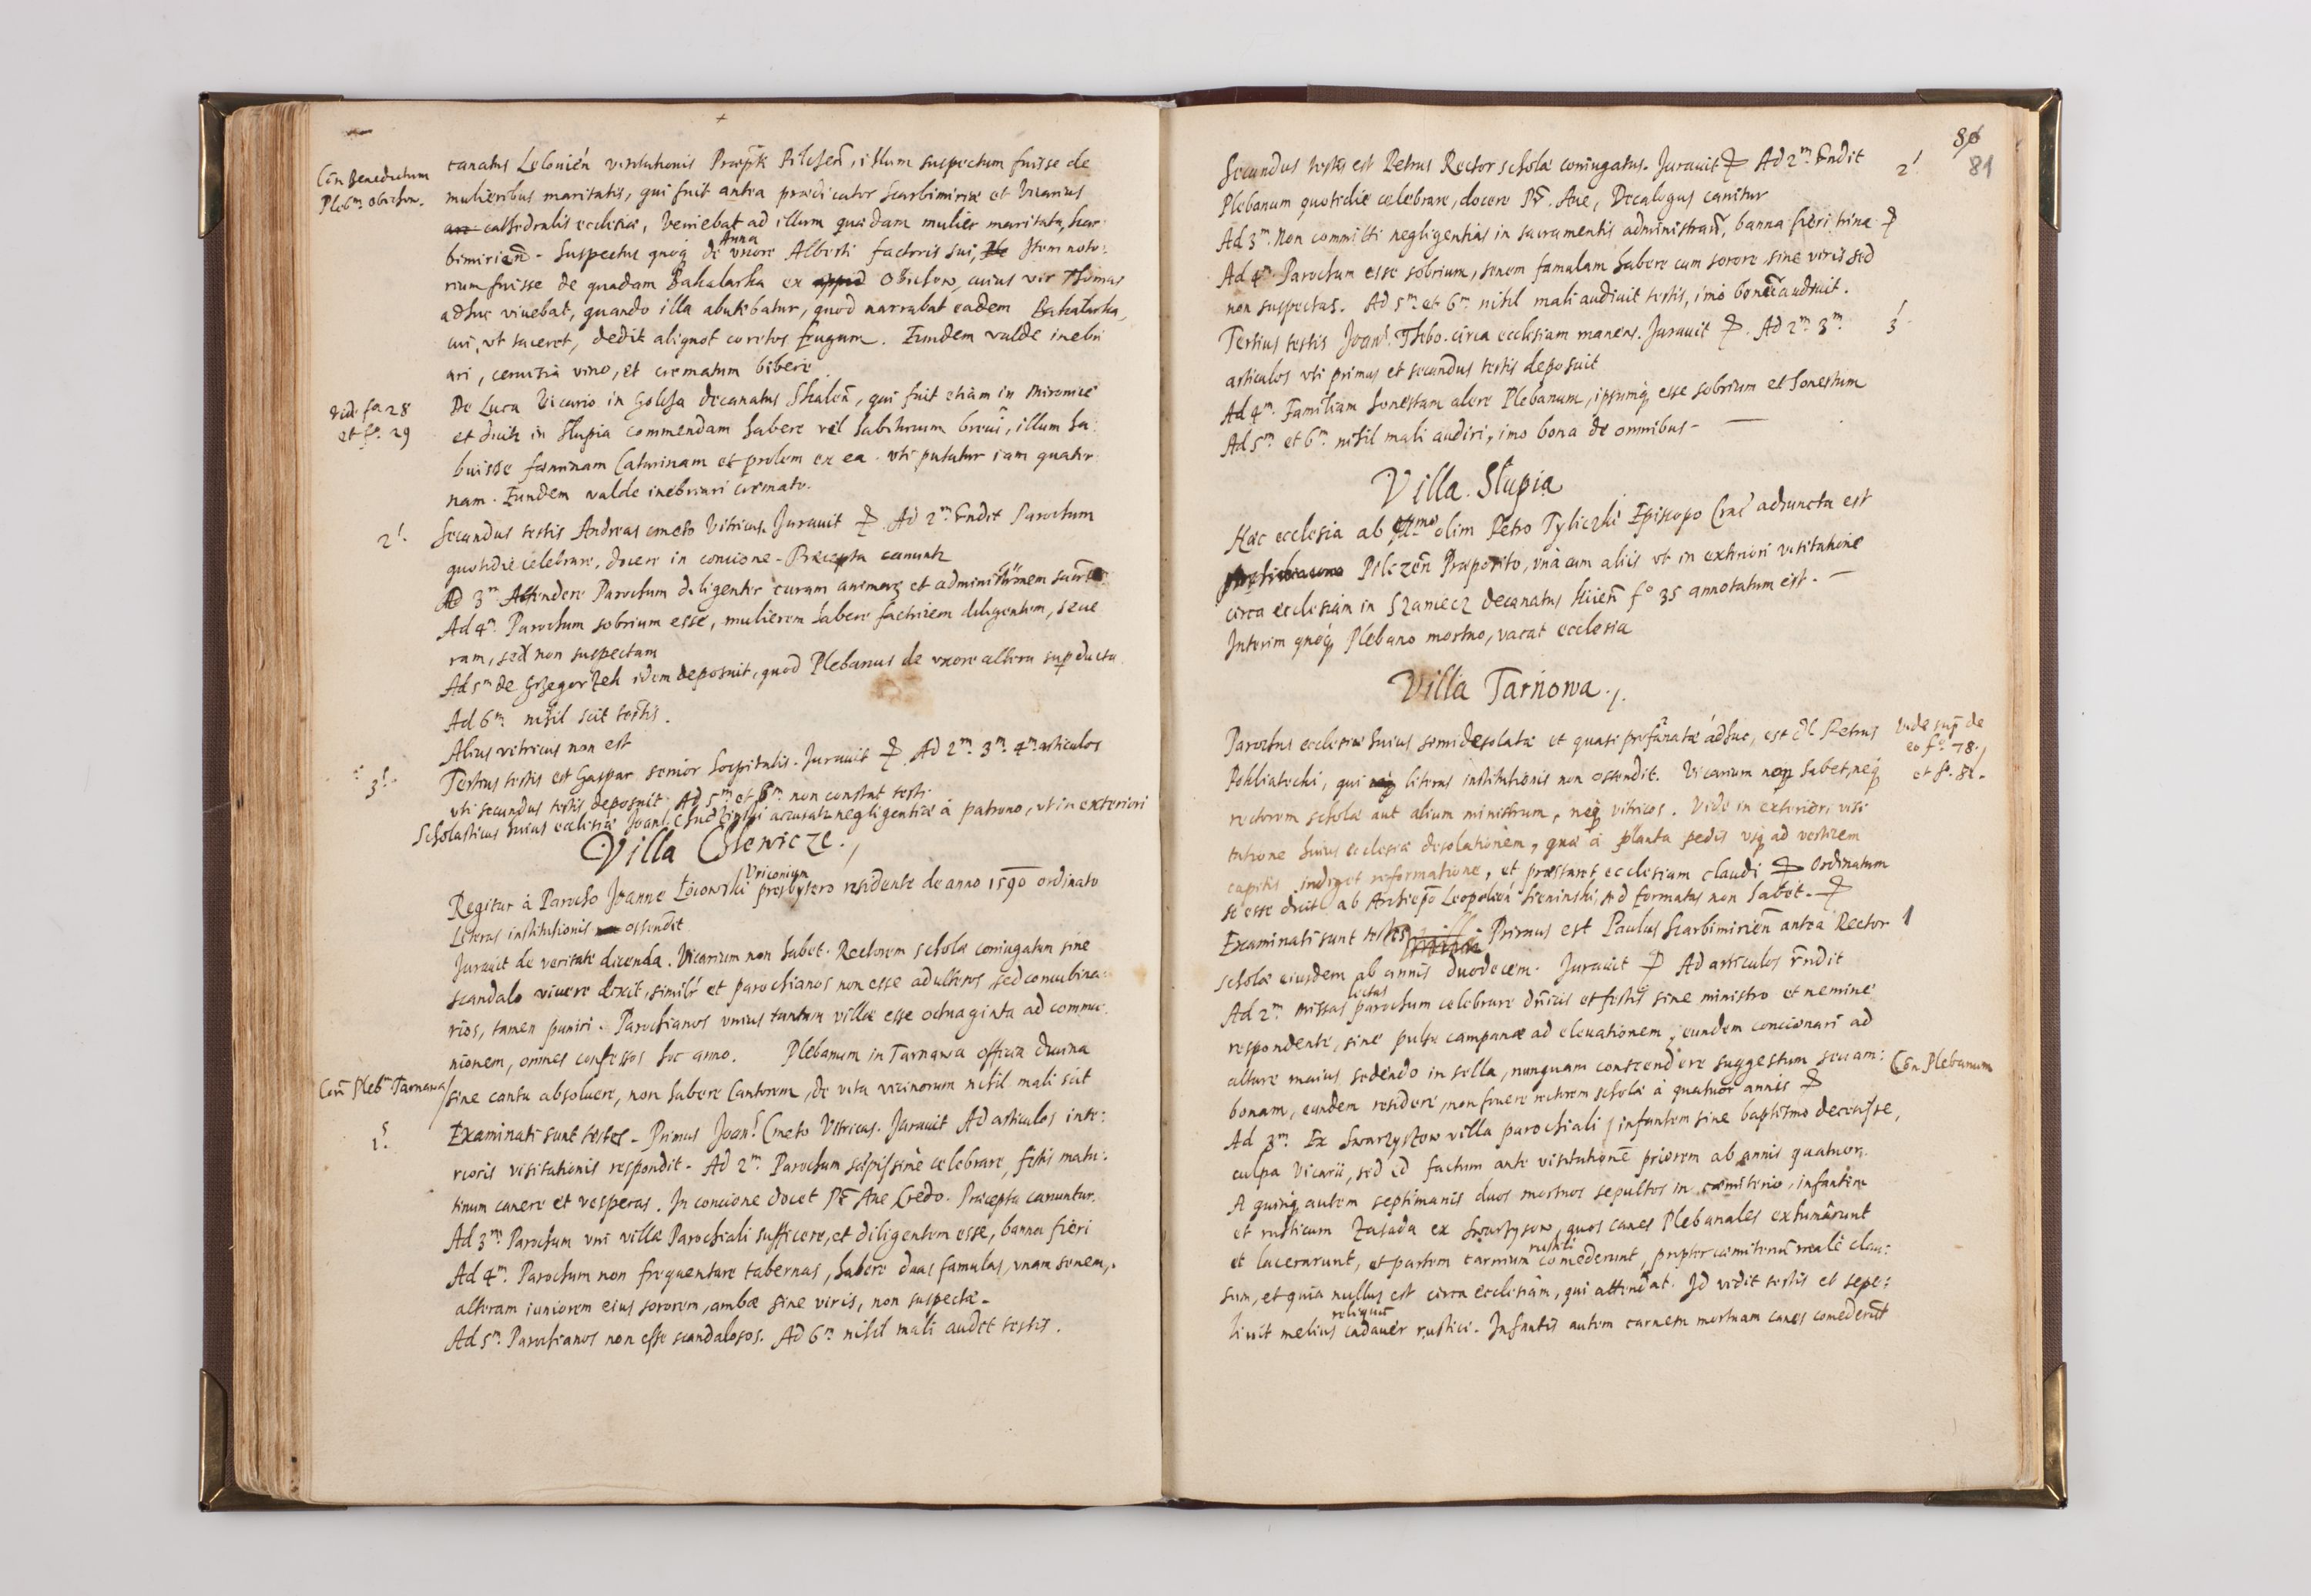 Con Benedictum
Pleb.m Obichow.
canatus Leloviēn visitationis Præpti Pilchēn, illum suspectum fuisse de
mulieribus maritatis, qui fuit antea prædicator Scarbimiriæ et Vicarius
cathedralis ecclesiæ, veniebat ad illum quædam mulier maritata, scar
bimiriēn. Suspectus quoq de Anna uxore Alberti factoris sui, Item noto:
rium fuisse de quadam Bakalarka ex Obichow, cuius vir Thomas
adhuc vivebat, quando illa abutebatur, quod narrabat eadem Bakalarka,
cui, ut taceret, dedit aliquot coretos frugum. Eundem valde inebri
ari, cervisia vino, et crematum bibere.
vide fo. 28
et fo. 29
De Luca Vicario in Golcza decanatus Skalēn, qui fuit etiam in Mironice
et dicit in Slupia commendam habere vel habiturum brevi, illum ha:
buisse fœminam Caturinam et prolem ex ea. uti putatur iam quater
nam. Eundem valde inebriari cremato.
2!
Secundus testis Andreas cmeto Vitricus. Juravit. Ad 2m Rndit Parochum
quotidie celebrare, docere in concione. Præcepta canunt
Ad 3m Attendere Parochum diligenter curam animarum et administrōnem sacr
Ad 4m Parochum sobrium esse, mulierem habere factricem diligentem, seve
ram, sed non suspectam
Ad 5m de Grzegorzek idem deposuit, quod Plebanus de uxore altera sup ducta
Ad 6m nihil scit testis.
Alius vitricus non est
3!
Tertius testis est Gaspar senior hospitalis. Juravit. Ad 2m 3m 4m articulos
uti secundus testis deposuit. Ad 5m et 6m non constat testi
Scholasticus huius ecclesiæ Joan! accusatr negligentiæ à patrono, ut in exteriori
Villa Colewicze.
Regitur à Parocho Joanne presbytero residente de anno 1590 ordinato
Literas institutionis ostendit
Juravit de veritate dicenda. Vicarium non habet. Rectorem scholæ coniugatum sine
scandalo vivere dixit, similr et parochianos non esse adulteros sed concubina
rios, tamen puniri. Parochianos unius tantum villæ esse octuaginta ad commu
nionem, omnes confessos hoc anno. Plebanum in Tarnawa officia divina
Con Pleb.m Tarnawa
sine cantu absolvere, non habere Cantorem, de vita vicinorum nihil mali scit
1!
Examinati sunt testes. Primus Joan! Cmeto Vitricus. Juravit Ad articulos inte:
rioris visitationis respondit. Ad 2m Parochum sæpissime celebrare, festis matu:
tinum canere et vesperas. In concione docet Pr Ave Credo. Præcepta canuntur.
Ad 3m Parochum uni villæ Parochiali sufficere, et diligentem esse, banna fieri
Ad 4m Parochum non frequentare tabernas, habere duas famulas, unam senem,
alteram iuniorem eius sororem, ambæ sine viris, non suspectæ.
Ad 5m Parochianos non esse scandalosos. Ad 6m nihil mali audit testis.
80
81
Secundus testis est Petrus Rector scholæ coniugatus. Juravit Ad 2m Rndit
2!
Plebanum quotidie celebrare, docere Pr. Ave, Decalogus canitur
Ad 3m Non committi negligentias in sacramentis administran, banna fieri trina
Ad 4m Parochum esse sobrium, senem famulam habere cum sorore sine viris sed
non suspectas. Ad 5m et 6m nihil mali audivit testis, imo bona audivit.
Tertius testis Joan! Thebo. circa ecclesiam manens. Juravit. Ad 2m 3m
3!
articulos uti primus et secundus testis deposuit
Ad 4m Familiam honestam alere Plebanum, ipsumq esse sobrium et honestum
Ad 5m et 6m nihil mali audiri, imo bona de omnibus
Villa Slupia
Hæc ecclesia ab olim Petro Tyliczki Episcopo Crac adiuncta est
Pilczēn Præposito, unà cum aliis ut in exteriori visitatione
circa ecclesiam in Szaniecz decanatus Kiiēn fo 35 annotatum est.
Interim quoq Plebano mortuo, vacat ecclesia
Villa Tarnowa.
Parochus ecclesiæ huius semidesolatæ et quasi profanatæ adhuc, est Petrus
Vide sup de
eo fo. 78.
et fo. 81.
qui literas institutionis non ostendit. Vicarium neq habet, neq
rectorem scholæ aut alium ministrum, neq vitricos. Vide in exteriori visi
tatione huius ecclesiæ desolationem, quæ à planta pedis usq ad verticem
capitis indiget reformatione, et præstaret ecclesiam claudi Ordinatum
se esse dicit ab Archiepo Leopolien Sieninski, sed formatas non habet.
Examinati sunt testes Primus est Paulus Scarbimiriēn antea Rector
1
scholæ eiusdem ab annis duodecem. Juravit Ad articulos Rndit
Ad 2m missas lectas parochum celebrare dnicis et festis sine ministro et nemine
respondente, sine pulsu campanæ ad elevationem, eundem concionari ad
altare maius sedendo in sella, nunquam conscendere suggestum seu am:
Con Plebanum
bonam, eundem residere, non fovere rectorem scholæ à quatuor annis
Ad 3m Ex Swarzyszow villa parochiali infantem sine baptismo decessisse,
culpa Vicarii, sed id factum ante visitationē priorem ab annis quatuor.
A quinq autem septimanis duos mortuos sepultos in cœmiterio, infantem
et rusticum Zasada ex Swarzysow, quos canes Plebanales exhumârunt
et lacerarunt, et partem carnium rustici comederunt, propter cœmiteriū male clau:
sum, et quia nullus est circa ecclesiam, qui attendat. Id vidit testis et sepe:
livit melius reliquū cadaver rustici. Infantis autem carnem mortuam canes comederūt